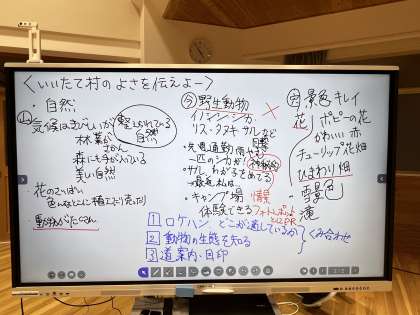 <いいたて村のよさを伝えよー>
・自然
気候はきびしいが
林業が
さかん
森に手が入っている
美しい自然
整えられている
自然
・花のさいばい
・動物がたくさん
野生動物 ×
イノシシ・シカ
リス・タヌキ・サルなど
一匹のシカが!
・キャンプ場
体験できる
景色キレイ
花 ポピーの花
かわいい 赤
チューリップ花畑
ひまわり畑
・雪景色
・滝
1 ロケハン どこが適しているか
2 動物の生態を知る
3 道案内・目印
くみ合わせ